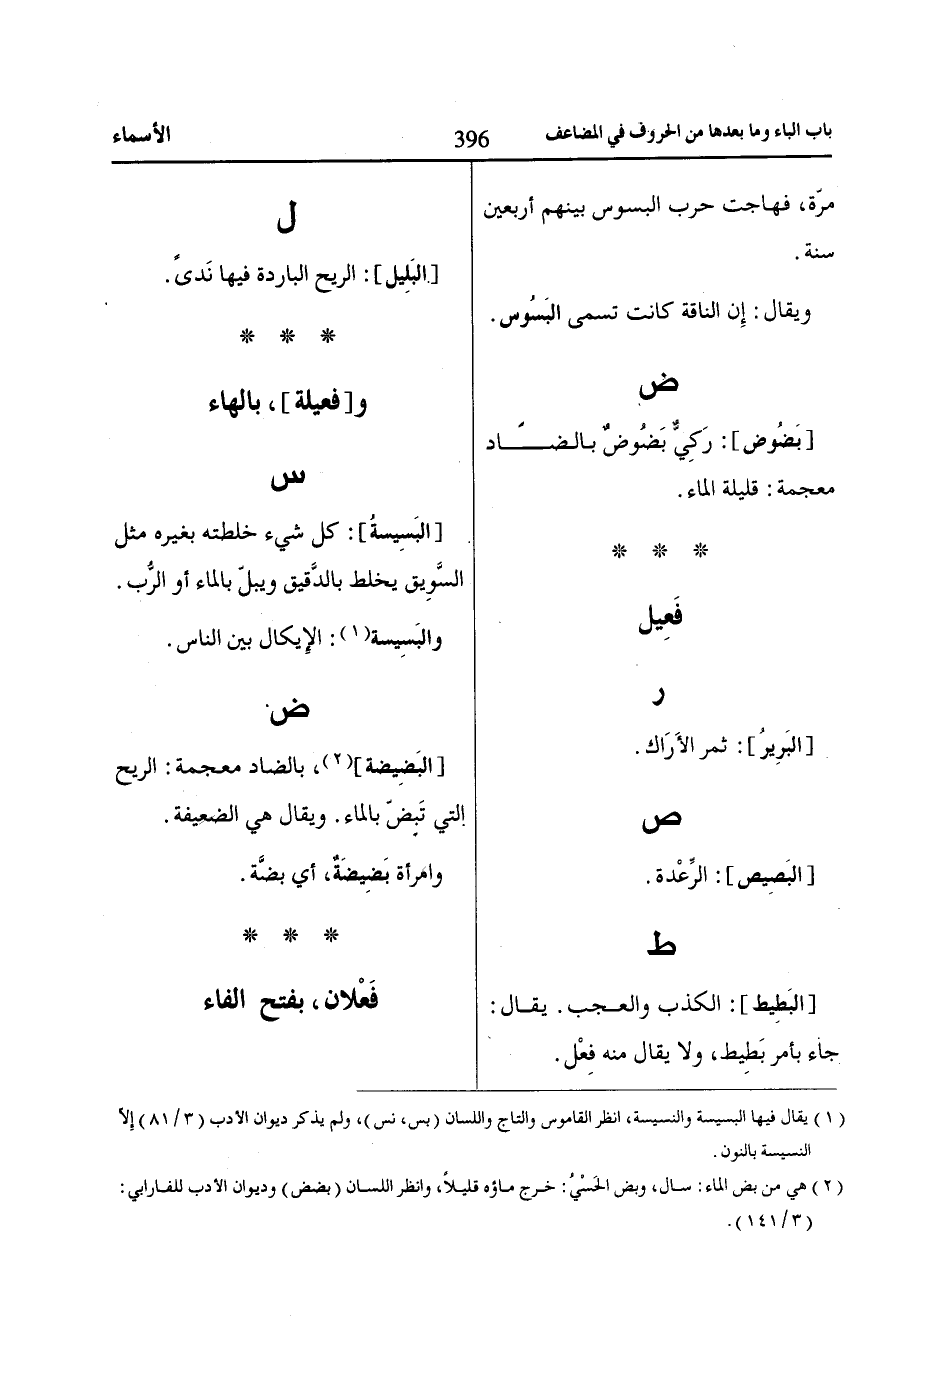 باب الباء وما بعدها من الحروف في المضاعف
396
الأسماء
مرّة، فهاجت حرب البسوس بينهم أربعين
سنة.
ويقال: إن الناقة كانت تسمى البَسُوس.
ض
[بَضُوض]: رَكِيٌّ بَضُوضٌ بالضّاد
معجمة: قليلة الماء.
* * *
فَعِيل
ر
[البَرِيرُ]: ثمر الأَرَاك.
ص
[البَصِيص]: الرِّعْدة.
ط
[البَطِيط]: الكذب والعجب. يقال:
جاء بأمر بَطِيط، ولا يقال منه فِعْل.
ل
[البَلِيل]: الريح الباردة فيها نَدىً.
* * *
و[فعيلة]، بالهاء
س
[البَسِيسةُ]: كل شيء خلطته بغيره مثل
السَّوِيق يخلط بالدَّقيق ويبلّ بالماء أو الرُّب.
والبَسِيسة(١): الإيكال بين الناس.
ض
[البَضِيضة](٢)، بالضاد معجمة: الريح
التي تَبِضّ بالماء. ويقال هي الضعيفة.
وامرأة بَضِيضَةٌ، أي بضَّة.
* * *
فَعْلان، بفتح الفاء
(١) يقال فيها البسيسة والنسيسة، انظر القاموس والتاج واللسان (بس، نس)، ولم يذكر ديوان الأدب (٣/ ٨١) إلاّ
النسيسة بالنون.
(٢) هي من بض الماء: سال، وبض الحَسْيُ: خرج ماؤه قليلاً، وانظر اللسان (بضض) وديوان الأدب للفارابي:
(٣/ ١٤١).